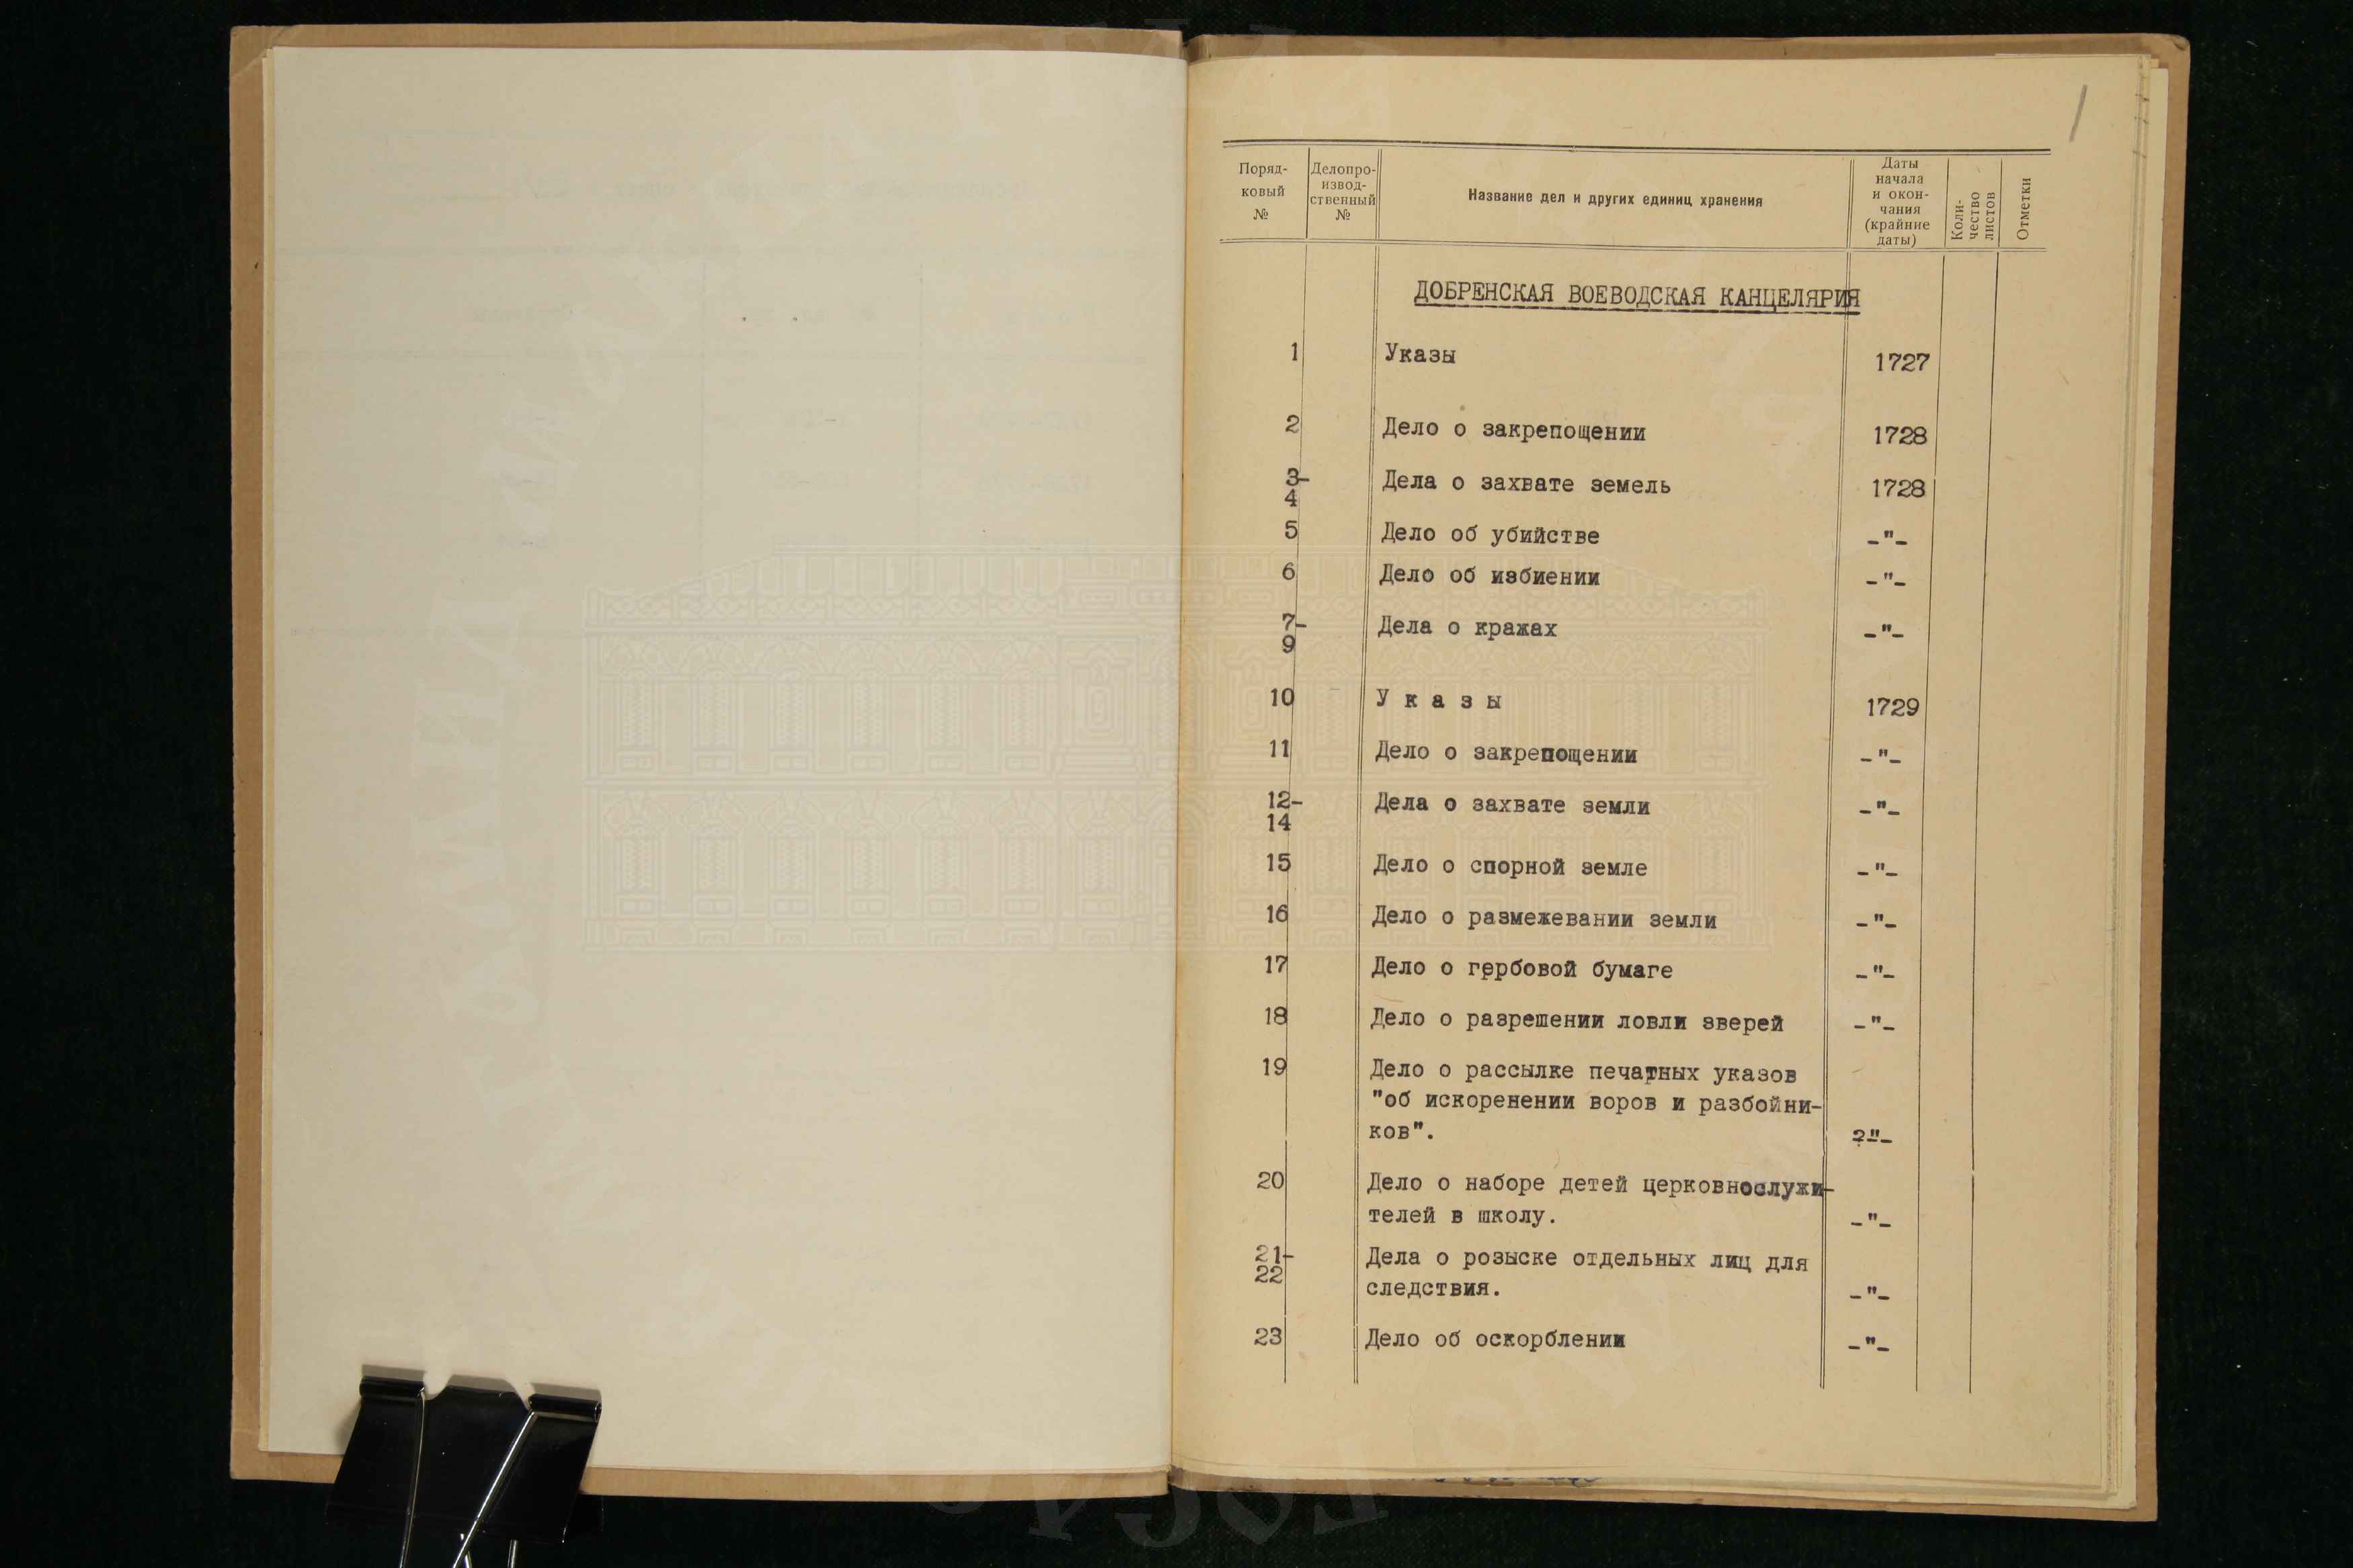 1
Поряд-
ковый
№
Делопро-
извод-
ственный
№
Название дел и других единиц хранения
Даты
начала
и окон-
чания
(крайние
даты)
Коли-
чество
листов
Отметки
ДОБРЕНСКАЯ ВОЕВОДСКАЯ КАНЦЕЛЯРИЯ
1 Указы 1727
2 Дело о закрепощении 1728
3- Дела о захвате земель 1728
4
5 Дело об убийстве -"-
6 Дело об избиении -"-
7- Дела о кражах -"-
9
10 У к а з ы 1729
11 Дело о закрепощении -"-
12- Дела о захвате земли -"-
14
15 Дело о спорной земле -"-
16 Дело о размежевании земли -"-
17 Дело о гербовой бумаге -"-
18 Дело о разрешении ловли зверей -"-
19 Дело о рассылке печатных указов
"об искоренении воров и разбойни-
ков". -"-
20 Дело о наборе детей церковнослужи-
телей в школу. -"-
21- Дела о розыске отдельных лиц для
22 следствия. -"-
23 Дело об оскорблении -"-